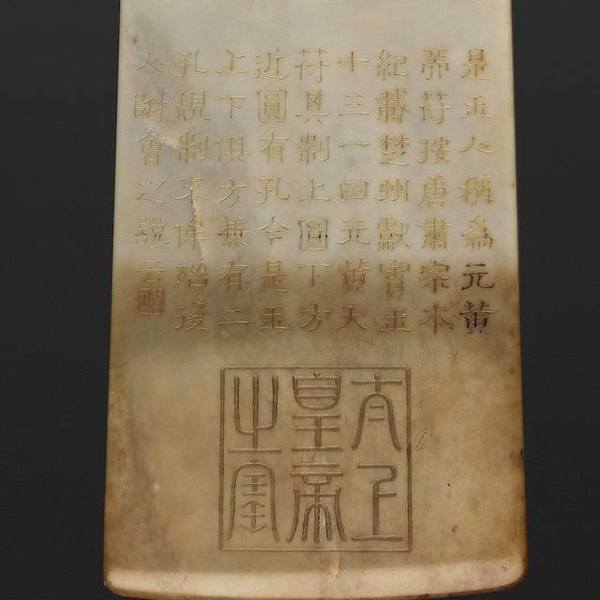 是玉人稱為元黃
符按唐肅宗本
紀載楚州獻寶玉
十三一曰元黃天
符其制上圓下方
近圓有孔今是玉
上下俱方兼有二
孔規制不侔殆後
人附會之說云
太上
皇帝
之寶